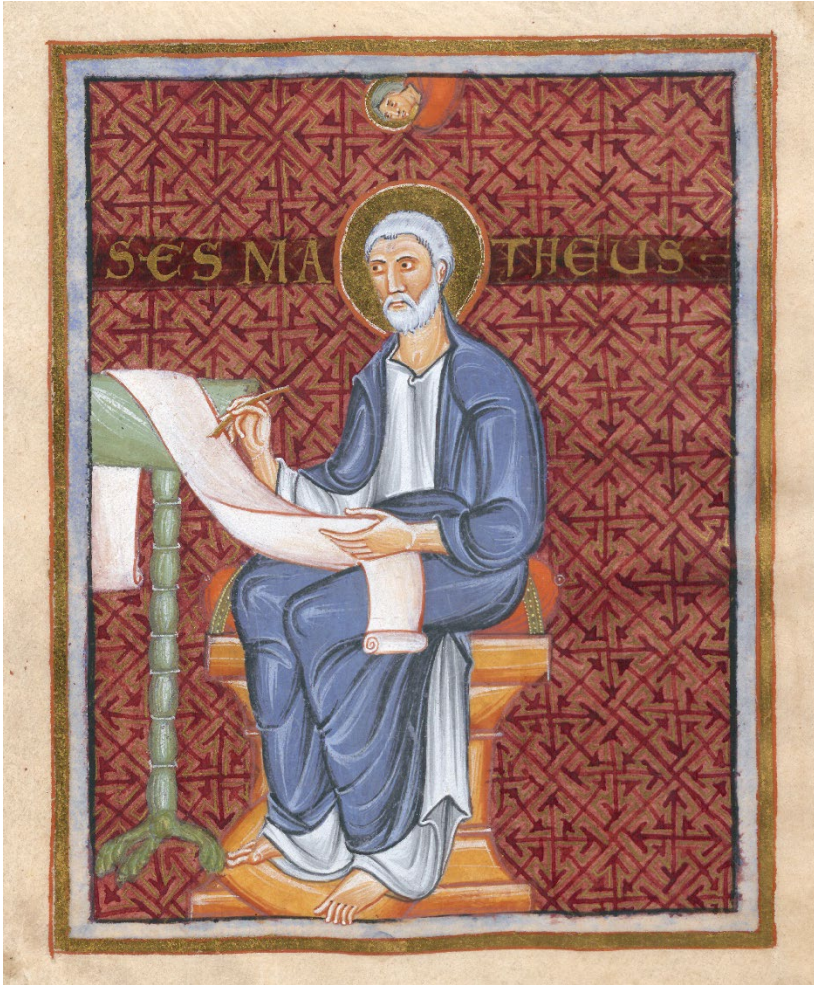 S·ES MATHEUS